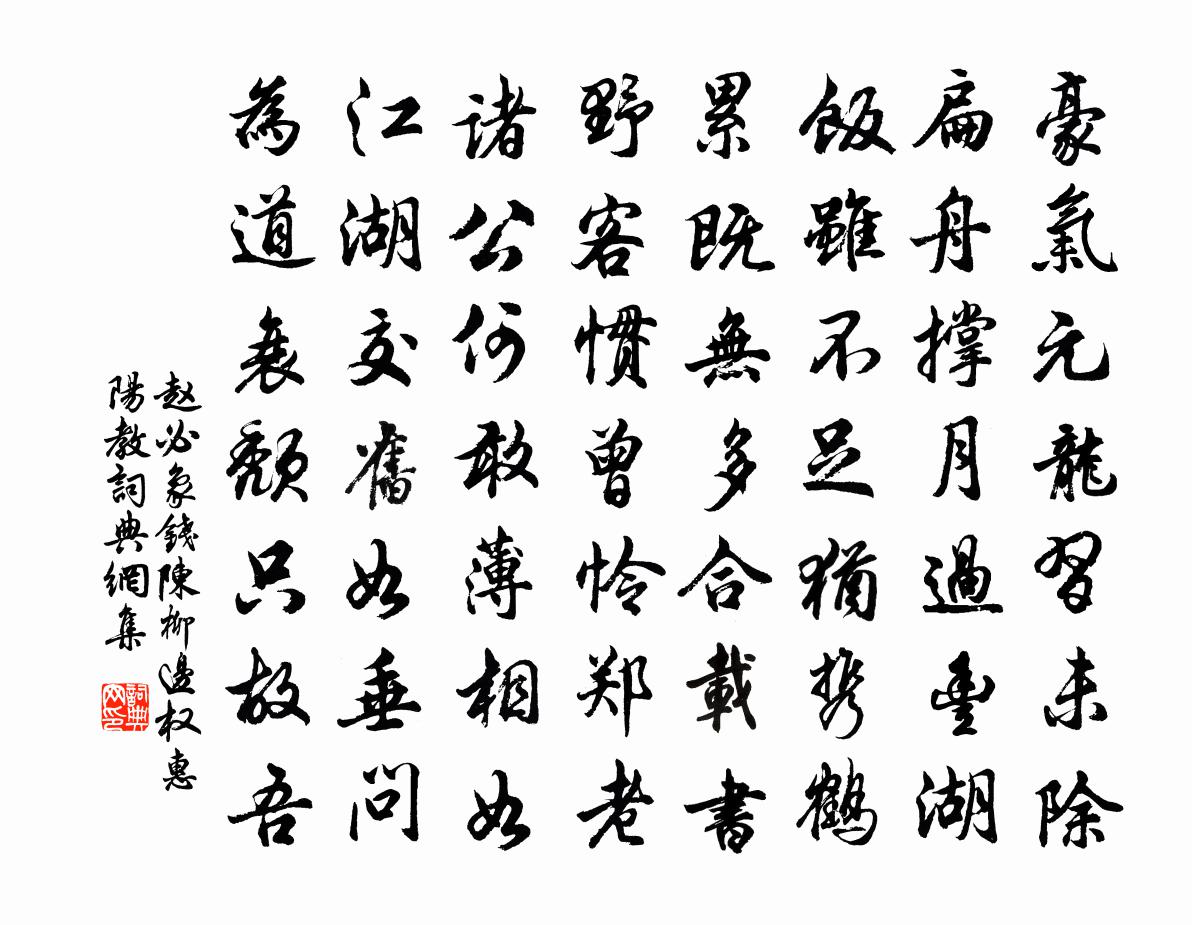 豪氣元龍習未除
扁舟撑月過豐湖
飯雖不足猶携鶴
累既無多合載書
野客慣曾怜郑老
诸公何敢薄相如
江湖交舊如垂問
為道衰颓只故吾
赵必象錢陳柳邊权惠
陽教詞典網集
詞典网印